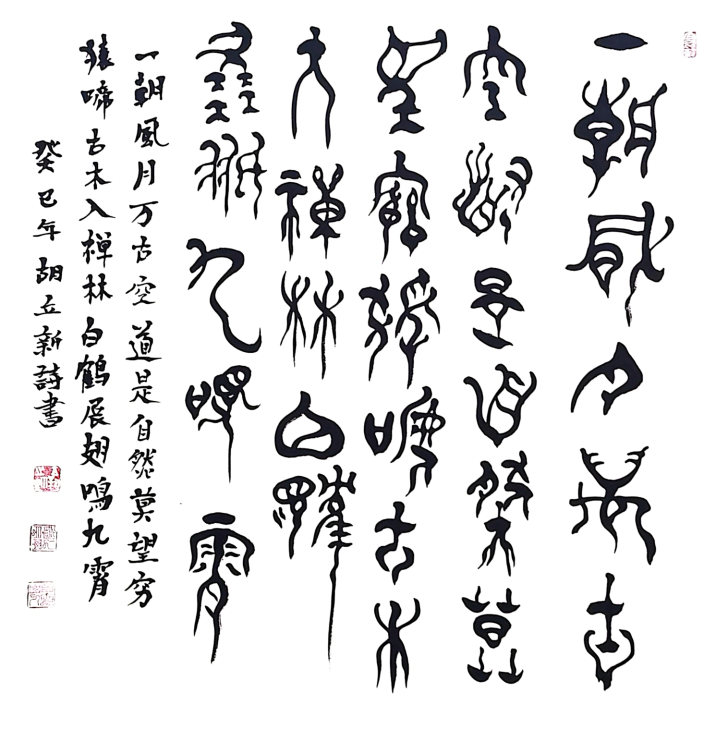 一朝风月万古
空道是自然莫
望穷猿啼古木
入禅林白鹤
展翅九鸣霄
一朝風月万古空道是自然莫望穷
猿啼古木入禅林白鶴展翅鳴九霄
癸巳年胡立新詩書